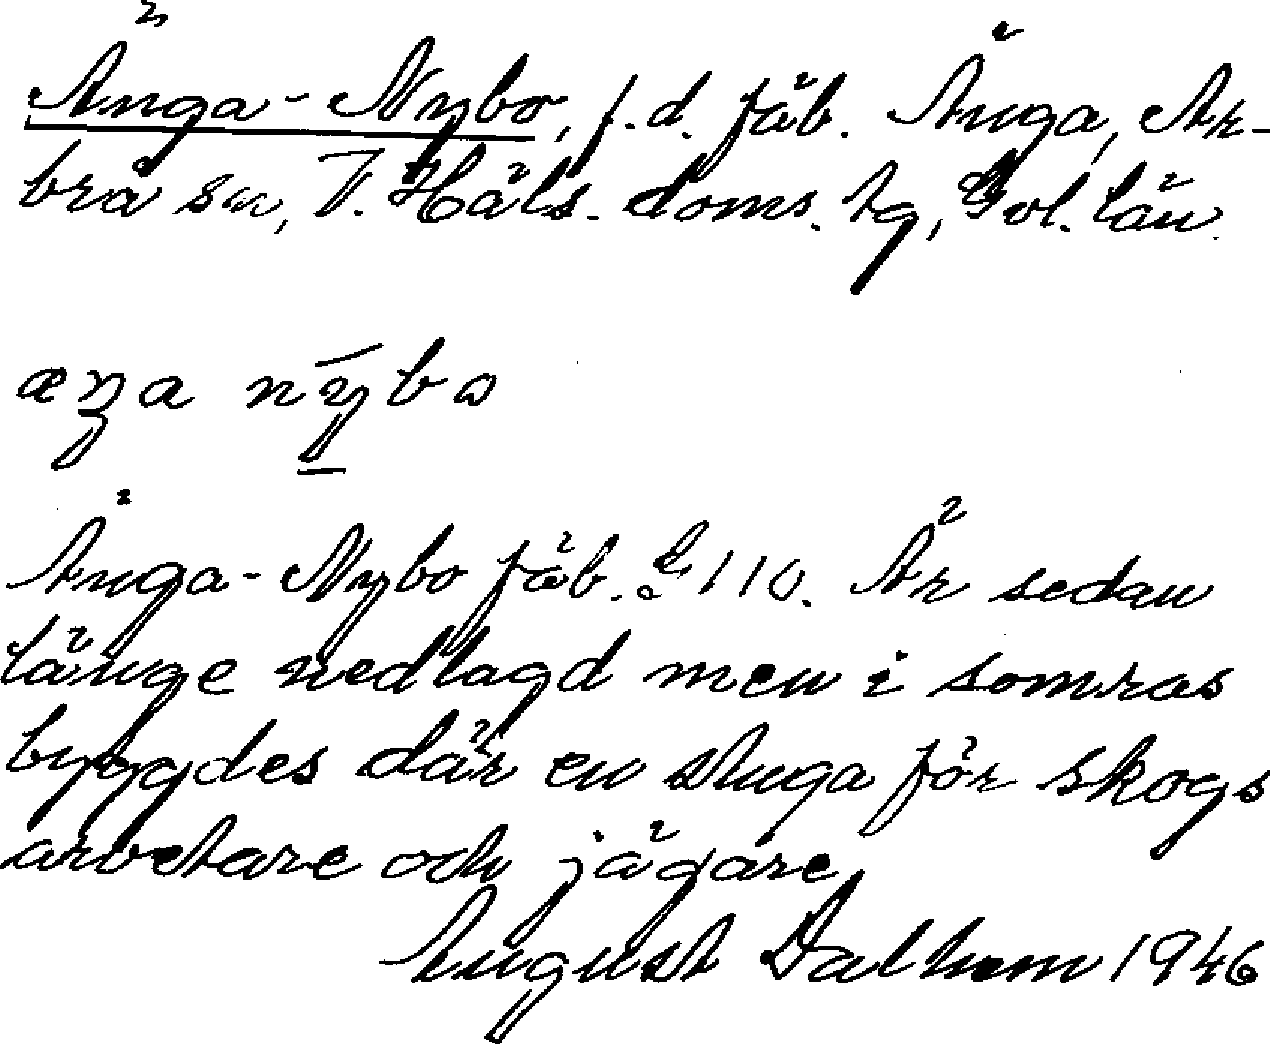 Änga-Nybo, f.d. fäb. Änga, Ar-
brå sn, V. Häls. doms. tg, Gvl. län.
æŋa nȳbo
Änga-Nybo fäb. 110. Är sedan
länge nedlagd men i somras
byggdes där en stuga för skogs
arbetare och jägare
August Dalhem 1946